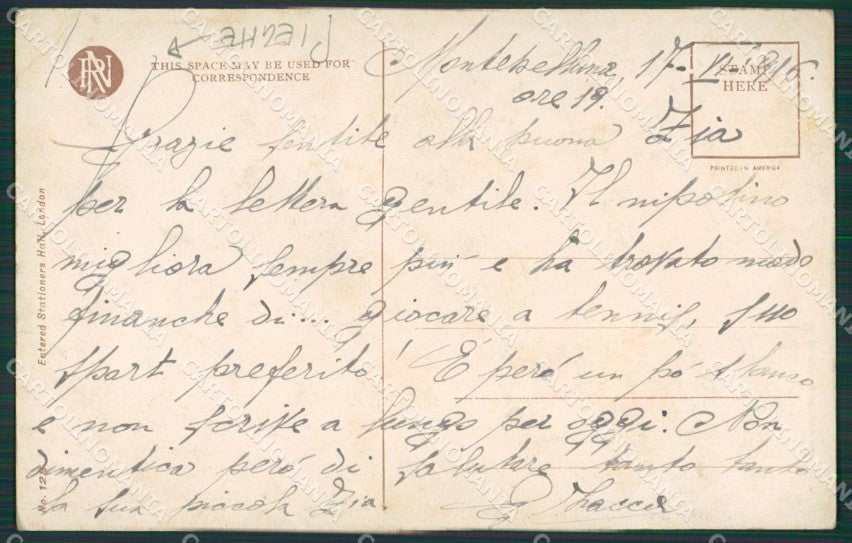 RN
THIS SPACE MAY BE USED FOR
CORRESPONDENCE
STAMP
HERE
PRINTED IN AMERICA
Entered Stationers Hall, London
No. 12
Montebelluna, 17- 916.
ore 19.
Grazie sentite alla buona Zia
per la lettera gentile. Il nipotino
migliora sempre più e ha trovato modo
finanche di... giocare a tennis, suo
sport preferito! È però un pò stanco
e non scrive a lungo per oggi. Non
dimentica però di salutare tanto tanto
la sua piccola Zia.
CARTOLINOMANIA